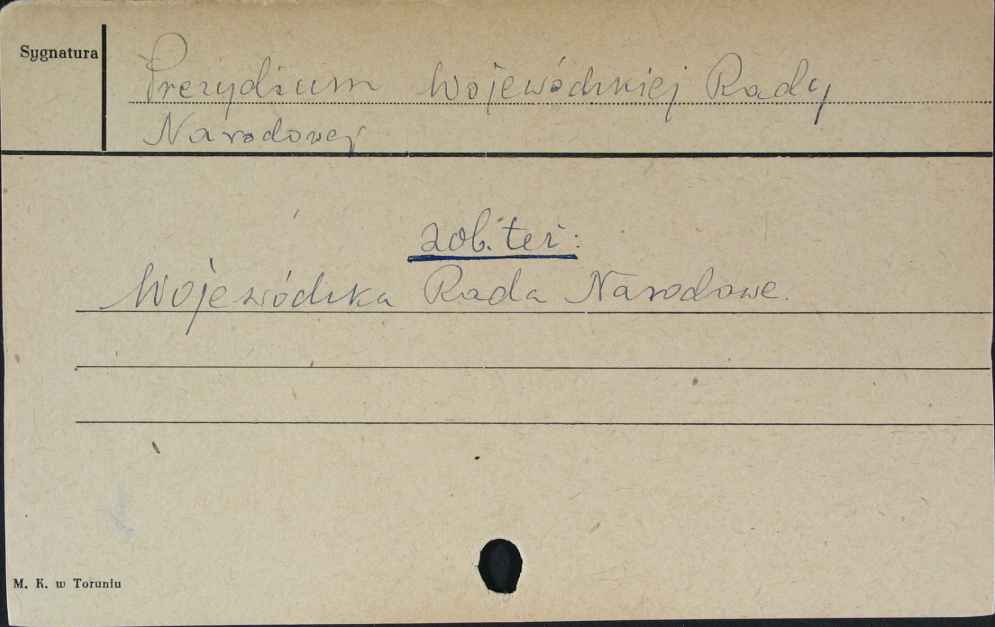 Sygnatura
Prezydium Wojewódzkiej Rady
Narodowej
zob. też:
Wojewódzka Rada Narodowa.
M. K. w Toruniu